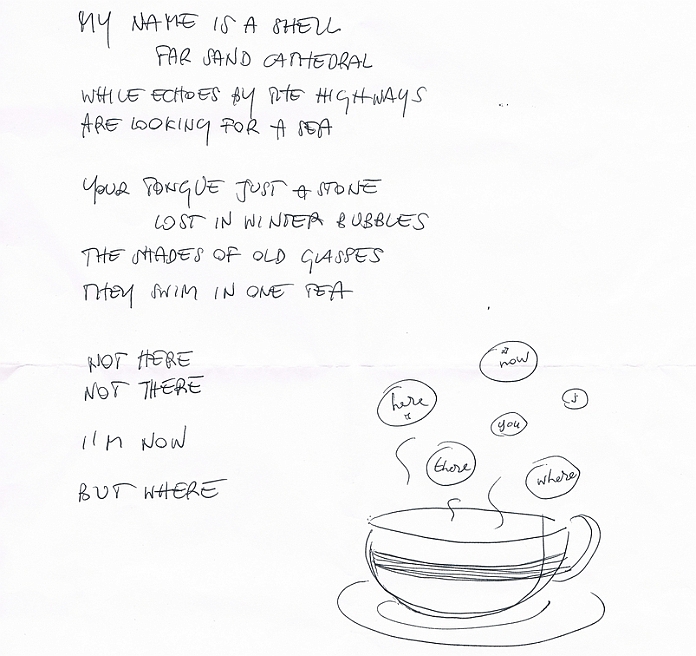 MY NAME IS A SHELL
FAR SAND CATHEDRAL
WHILE ECHOES BY THE HIGHWAYS
ARE LOOKING FOR A SEA
YOUR TONGUE JUST A STONE
LOST IN WINTER BUBBLES
THE SHADES OF OLD GLASSES
THEY SWIM IN ONE TEA
NOT HERE
NOT THERE
I'M NOW
BUT WHERE
now
here
I
you
there
where